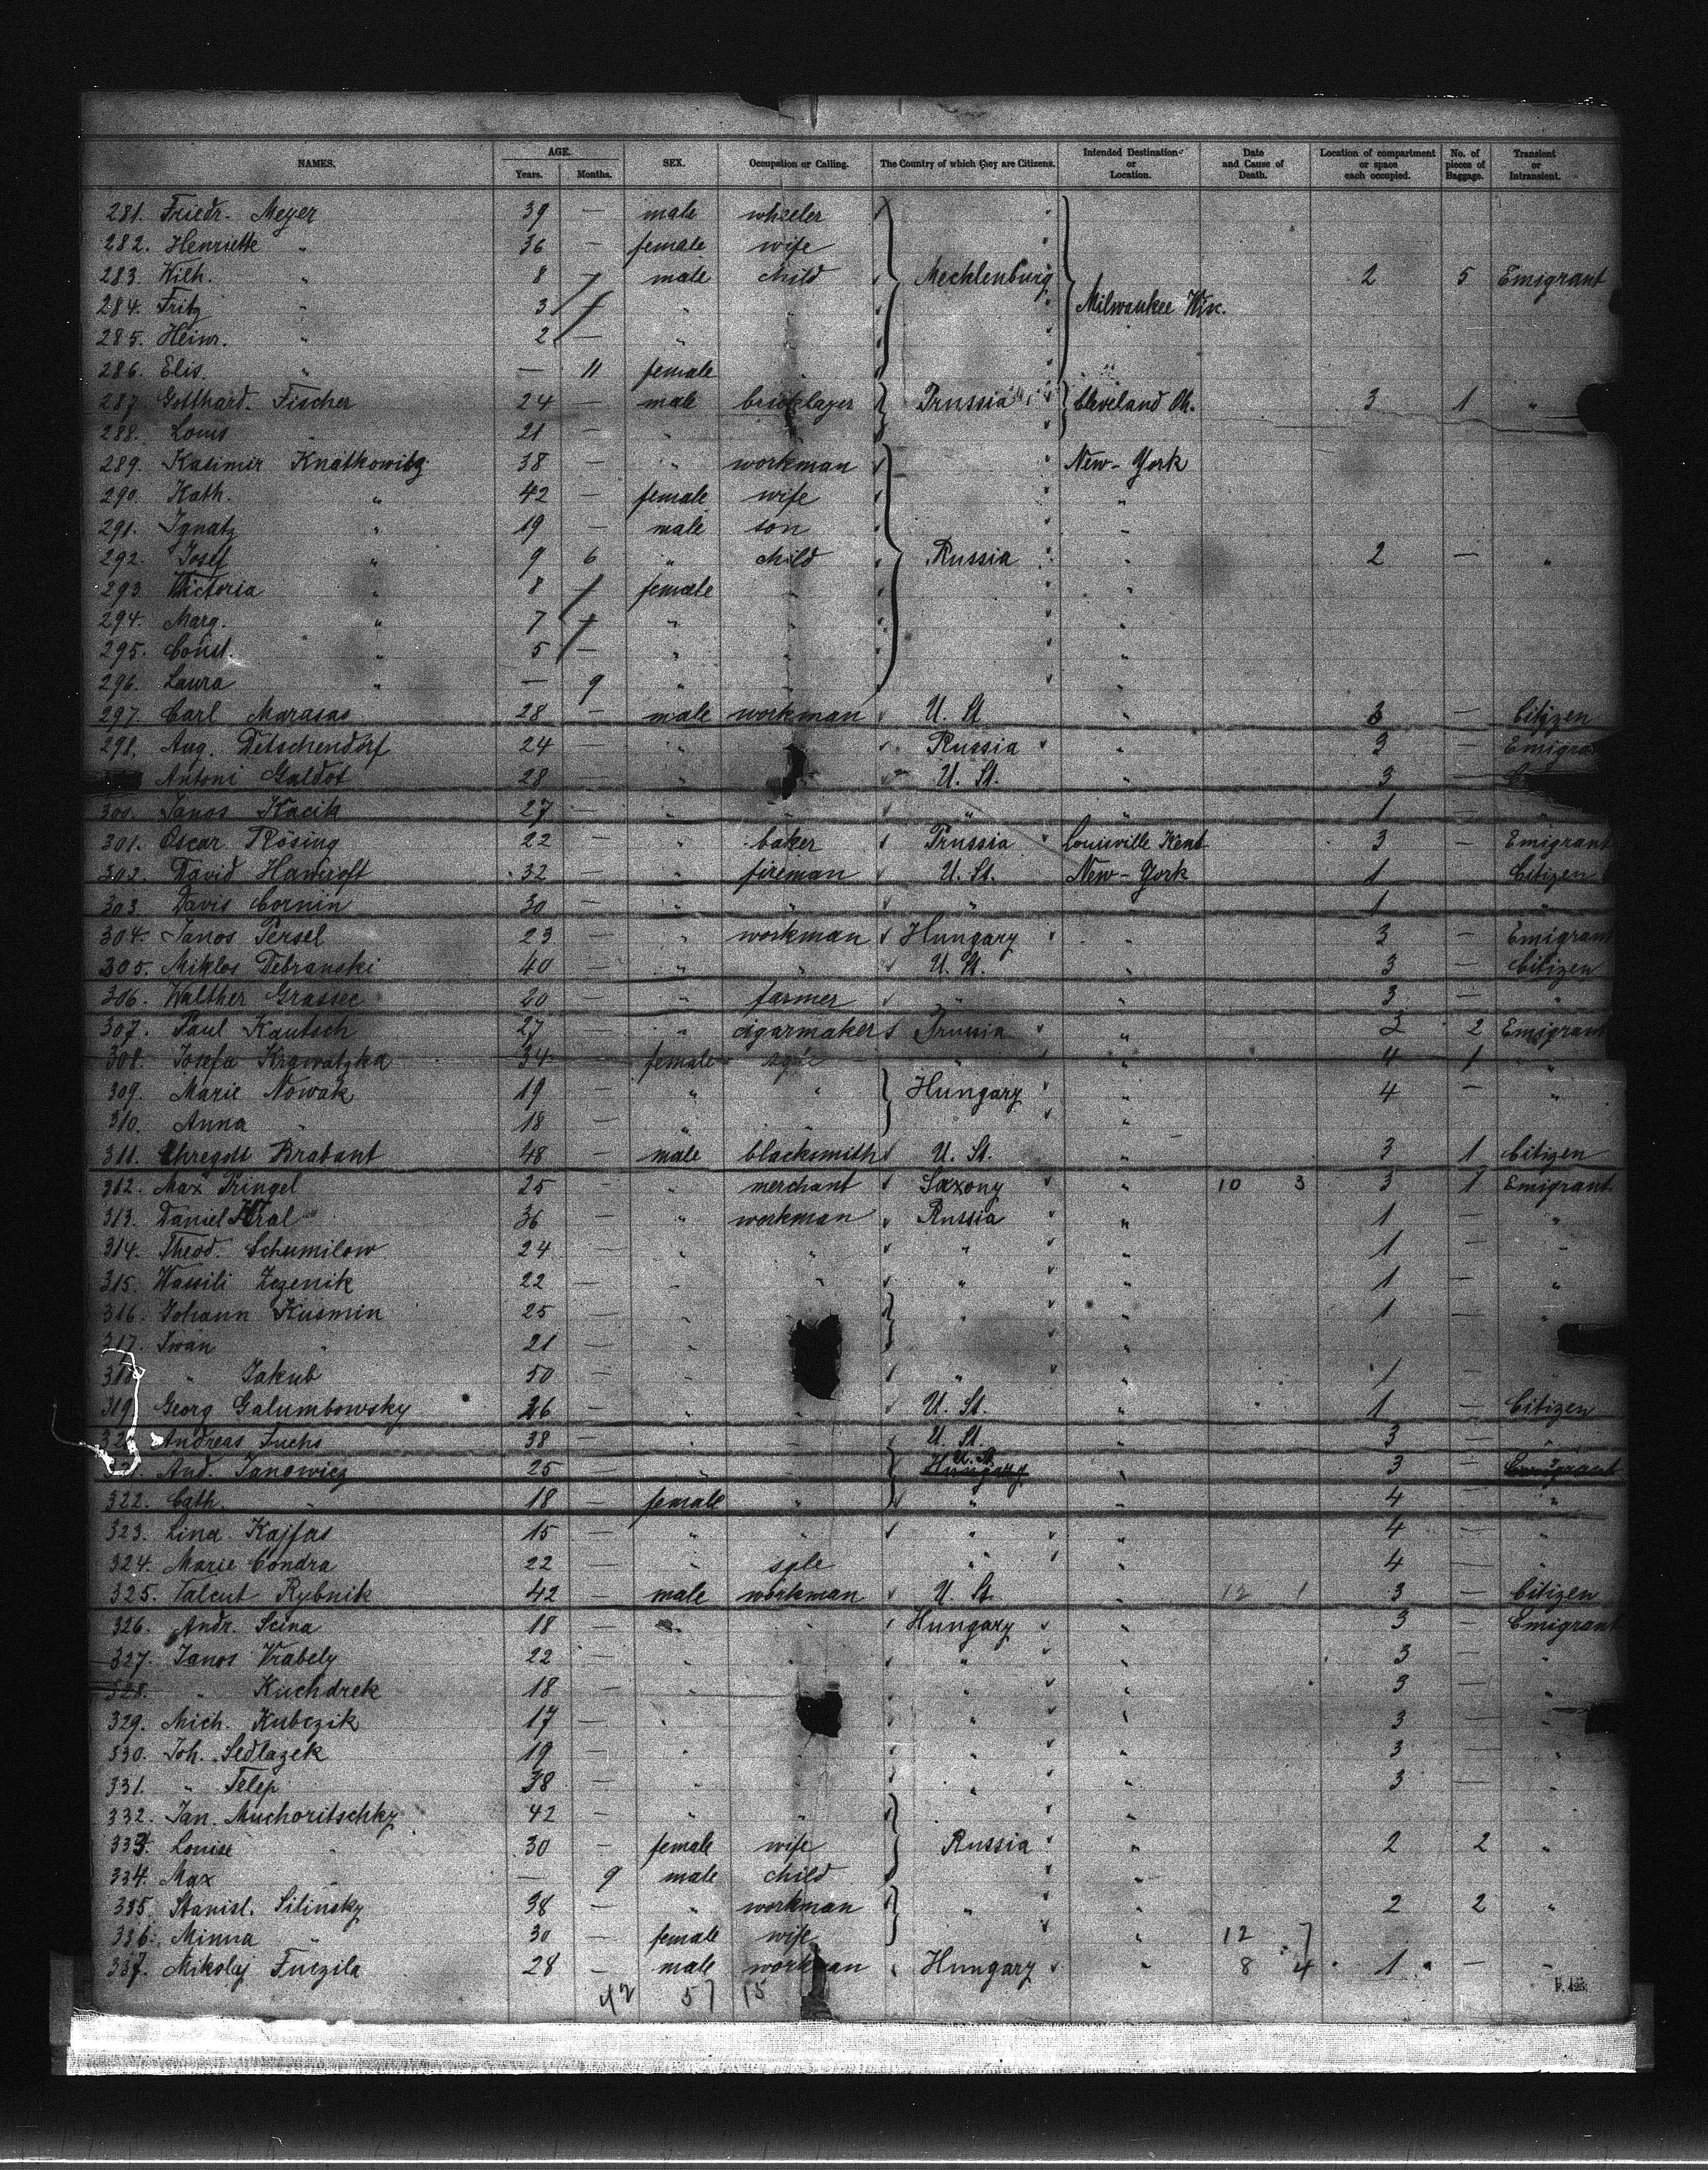 NAMES. AGE. Years. Months. SEX. Occupation or Calling. The Country of which they are Citizens. Intended Destination or Location. Date and Cause of Death. Location of compartment or space each occupied. No. of pieces of Baggage. Transient or Intransient.
281. Friedr. Meyer 39 — male wheeler
282. Henriette " 36 — female wife
283. Wilh. " 8 male child Mecklenburg 2 5 Emigrant
284. Fritz " 3 " " Milwaukee Wisc.
285. Heinr. " 2 — " "
286. Elis. " — 11 female "
287. Gotthard. Fischer 24 — male bricklayer Prussia Cleveland Oh. 3 1 "
288. Louis " 21 — " "
289. Kasimir Knatkowitz 38 — " workman New-York
290. Kath. " 42 — female wife "
291. Ignatz " 19 — male son "
292. Josef " 9 6 " child Russia " 2 — "
293. Victoria " 8 female " "
294. Marg. " 7 " " "
295. Const. " 5 — " " "
296. Laura " — 9 " " "
297. Carl Marasas 28 — male workman U. St. " 3 — Citizen
298. Aug. Detschendorf 24 — " " Russia " 3 — Emigra
Antoni Galdot 28 — " U. St. " 3 —
300. Janos Kacik 27 — " " " " 1 — "
301. Oscar Rösing 22 — " baker Prussia Louisville Kent 3 — Emigrant
302. David Hawcroft 32 — " fireman U. St. New-York 1 Citizen
303. Davis Cornin 30 — " " " " 1 "
304. Janos Persel 23 — " workman Hungary " 3 — Emigrant
305. Miklos Debranski 40 — " " U. St. " 3 — Citizen
306. Walther Grassec 20 — " farmer " " 3 — "
307. Paul Kautsch 27 — " cigarmaker Prussia " 3 2 Emigrant
308. Josefa Krawatzka 34 — female sgle " " 4 1 "
309. Marie Nowak 19 — " " Hungary " 4 — "
310. Anna " 18 — " " "
311. Ehregott Brabant 48 — male blacksmith U. St. " 3 1 Citizen
312. Max Pringel 25 — " merchant Saxony " 10 3 3 1 Emigrant
313. Daniel Kral 36 — " workman Russia " 1 — "
314. Theod. Schumilow 24 — " " " " 1 — "
315. Wassili Zezenik 22 — " " " " 1 — "
316. Johann Kusmin 25 — " " " 1 — "
317. Iwan " 21 — " "
318 " Jakub 50 — " " " 1 — "
319 Georg Galumbowsky 26 — " " U. St. " 1 — Citizen
32 Andreas Fuchs 38 — " " U. St. " 3 — "
And. Janowicz 25 — " " Hungary U. St. " 3 — Emigrant
322. Cath. " 18 — female " " " 4 — "
323. Lina Kajfas 15 — " " " " 4 — "
324. Marie Condra 22 — " sgle " " 4 — "
325. Valcut Rybnik 42 — male workman U. St. " 12 1 3 — Citizen
326. Andr. Scina 18 — " Hungary " 3 — Emigrant
327. Janos Vrabely 22 — " " " " 3 — "
328. " Kuchdrek 18 — " " " 3 — "
329. Mich. Kubczik 17 — " " " 3 — "
330. Joh. Sedlazek 19 — " " " " 3 — "
331. " Telep 38 — " " " " 3 — "
332. Jan. Muchoritschky 42 — " " "
333. Louise " 30 — female wife Russia " 2 2 "
334. Max " — 9 male child "
335. Stanisl. Silinsky 38 — " workman " " 2 2 "
336. Minna " 30 — female wife " 12 7
337. Mikolej Fuczila 28 — male workman Hungary " 8 4 1 — "
42 57 15